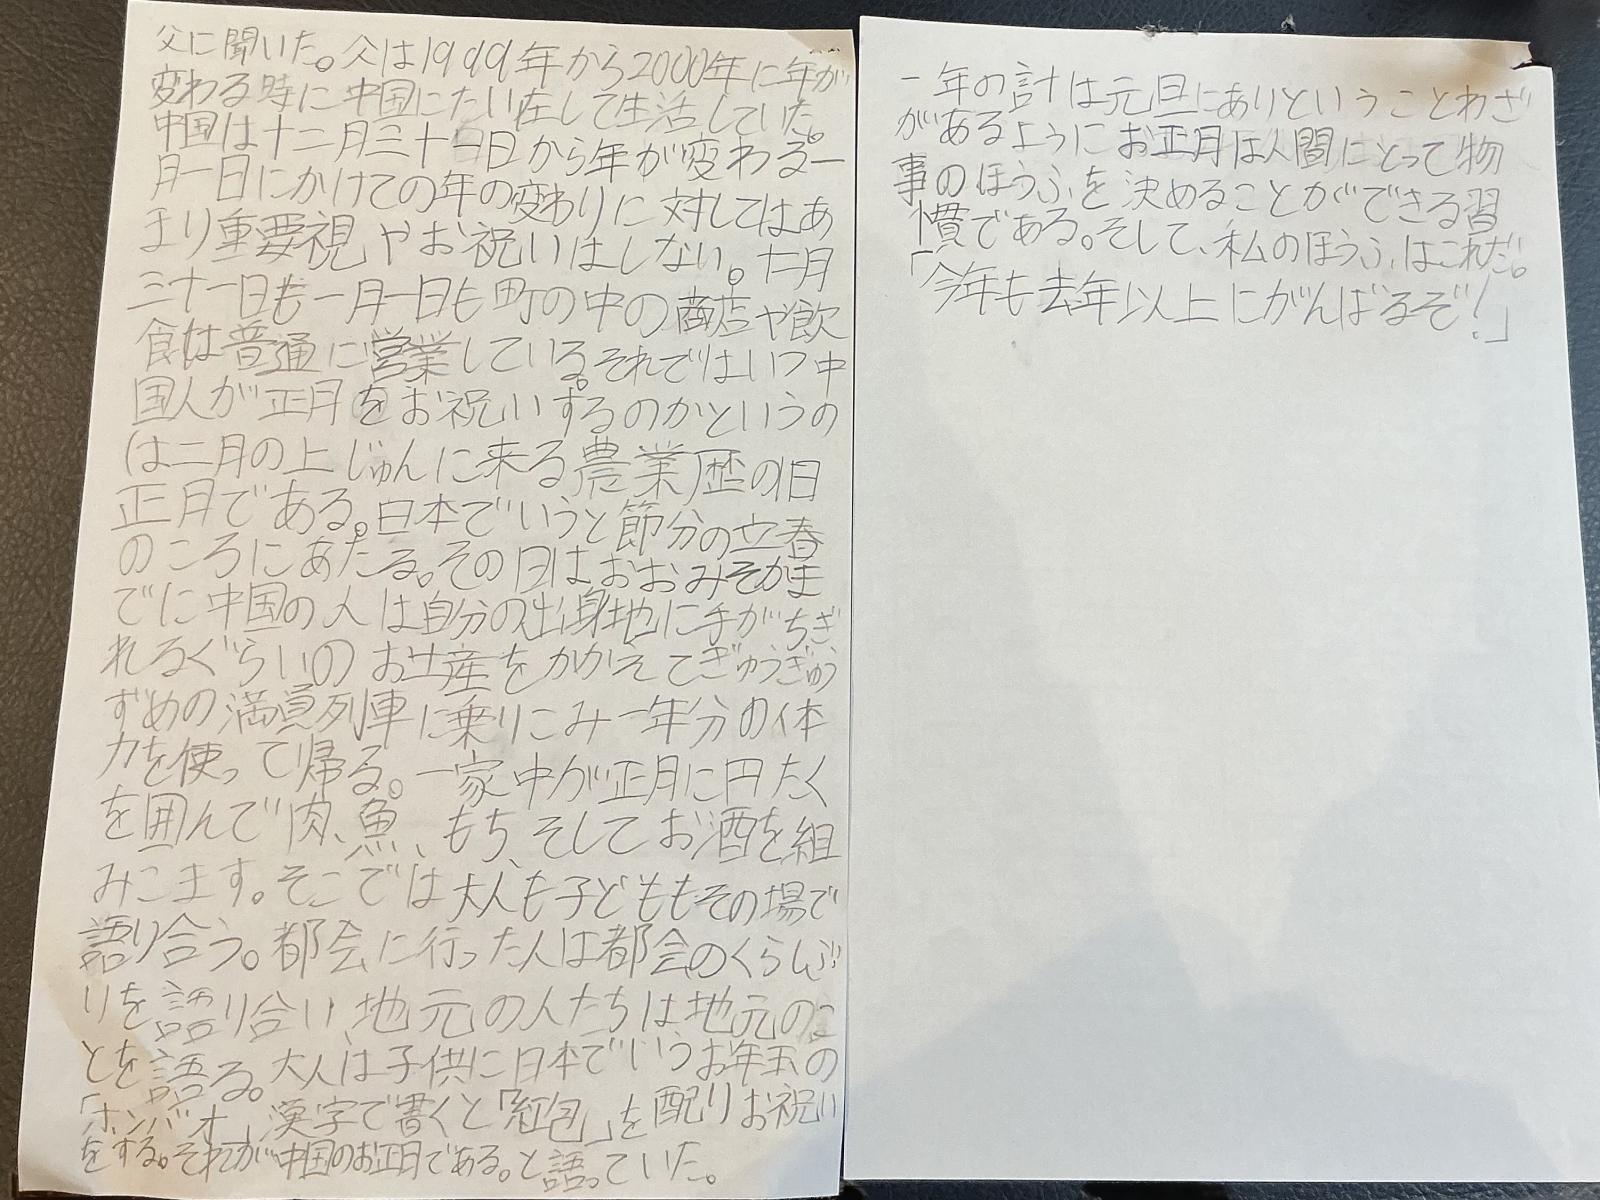 父に聞いた。父は1999年から2000年に年が
変わる時に中国にたい在して生活していた。
中国は十二月三十一日から年が変わる一
月一日にかけての年の変わりに対してはあ
まり重要視やお祝いはしない。十二月
三十一日も一月一日も町の中の商店や飲
食は普通に営業している。それではいつ中
国人が正月をお祝いするのかというの
は二月の上じゅんに来る農業歴の旧
正月である。日本でいうと節分の立春
のころにあたる。その日はおおみそかま
でに中国の人は自分の出身地に手がちぎ
れるぐらいのお土産をかかえてぎゅうぎゅう
ずめの満員列車に乗りこみ一年分の体
力を使って帰る。一家中が正月に円たく
を囲んで肉、魚、もち、そしてお酒を組
みこます。そこでは大人も子どももその場で
語り合う。都会に行った人は都会のくらしぶ
りを語り合い、地元の人たちは地元のこ
とを語る。大人は子供に日本でいうお年玉の
「ホンバオ」漢字で書くと「紅包」を配りお祝い
をする。それが中国のお正月である。と語っていた。
一年の計は元旦にありということわざ
があるようにお正月は人間にとって物
事のほうふを決めることができる習
慣である。そして、私のほうふはこれだ。
「今年も去年以上にがんばるぞ！」